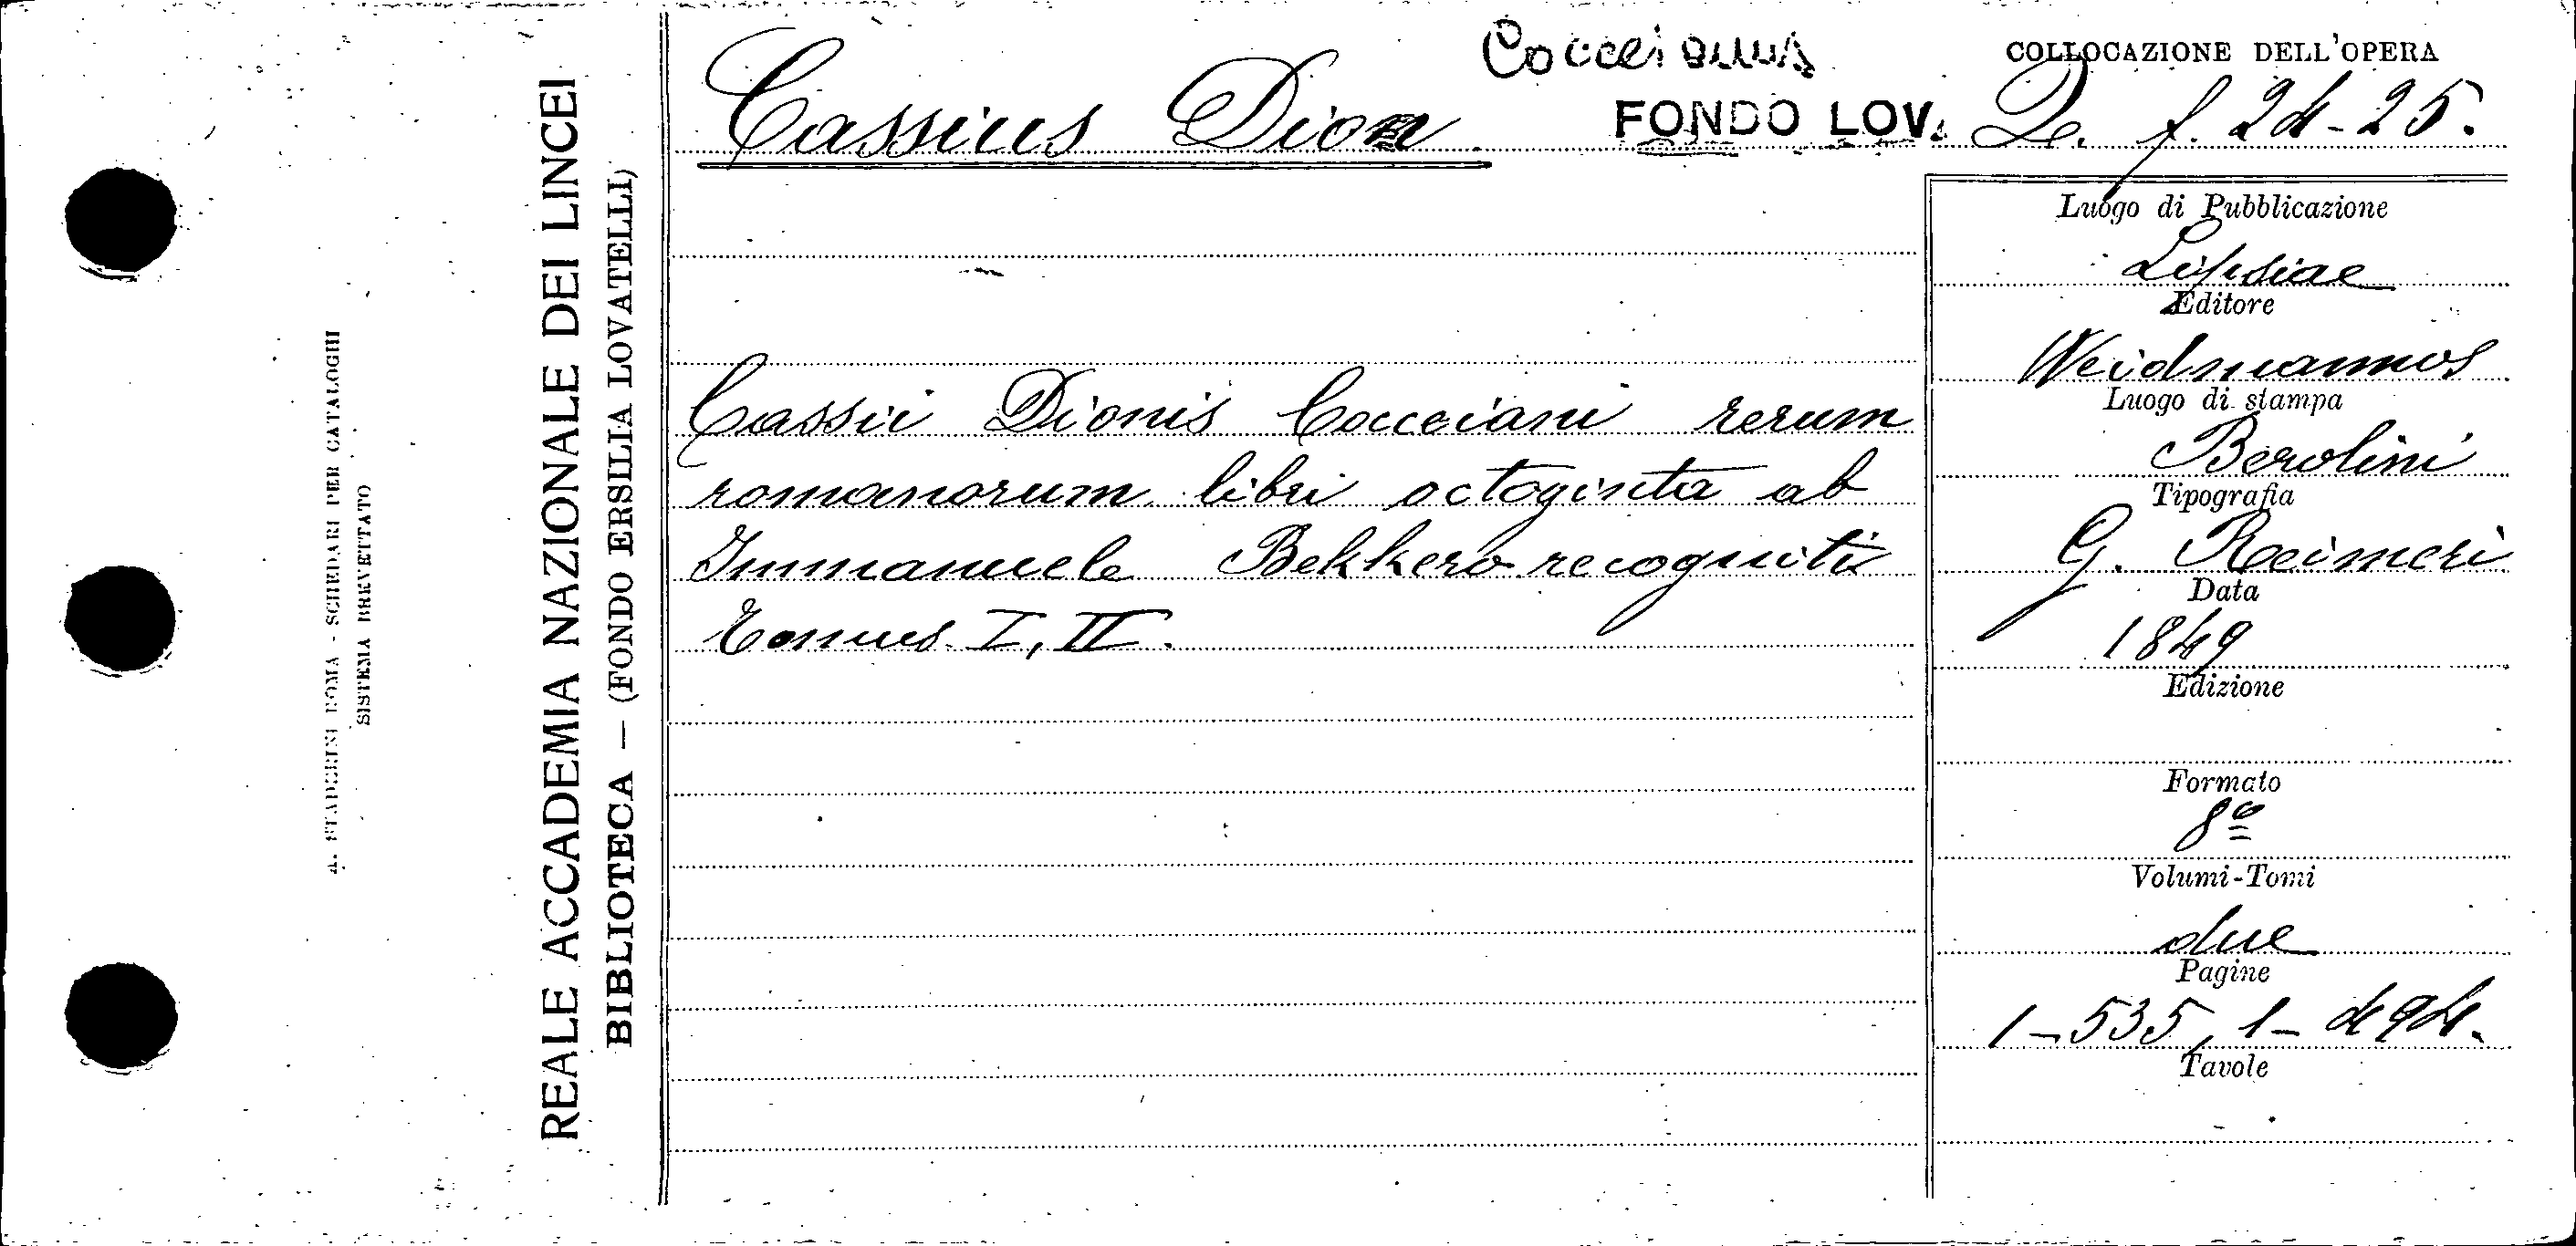 A. STADERINI ROMA - SCHEDARI PER CATALOGHI
SISTEMA BREVETTATO
REALE ACCADEMIA NAZIONALE DEI LINCEI
BIBLIOTECA — (FONDO ERSILIA LOVATELLI)
Cocceianus
Cassius Dion
FONDO LOV.
COLLOCAZIONE DELL'OPERA
D. f. 24-25.
Cassii Dionis Cocceiani rerum
romanorum libri octoginta ab
Immanuele Bekkero recogniti
Tomus I, II.
Luogo di Pubblicazione
Lipsiae
Editore
Weidmannos
Luogo di stampa
Berolini
Tipografia
G. Reimeri
Data
1849
Edizione
Formato
8º
Volumi-Tomi
due
Pagine
1-535, 1-494.
Tavole